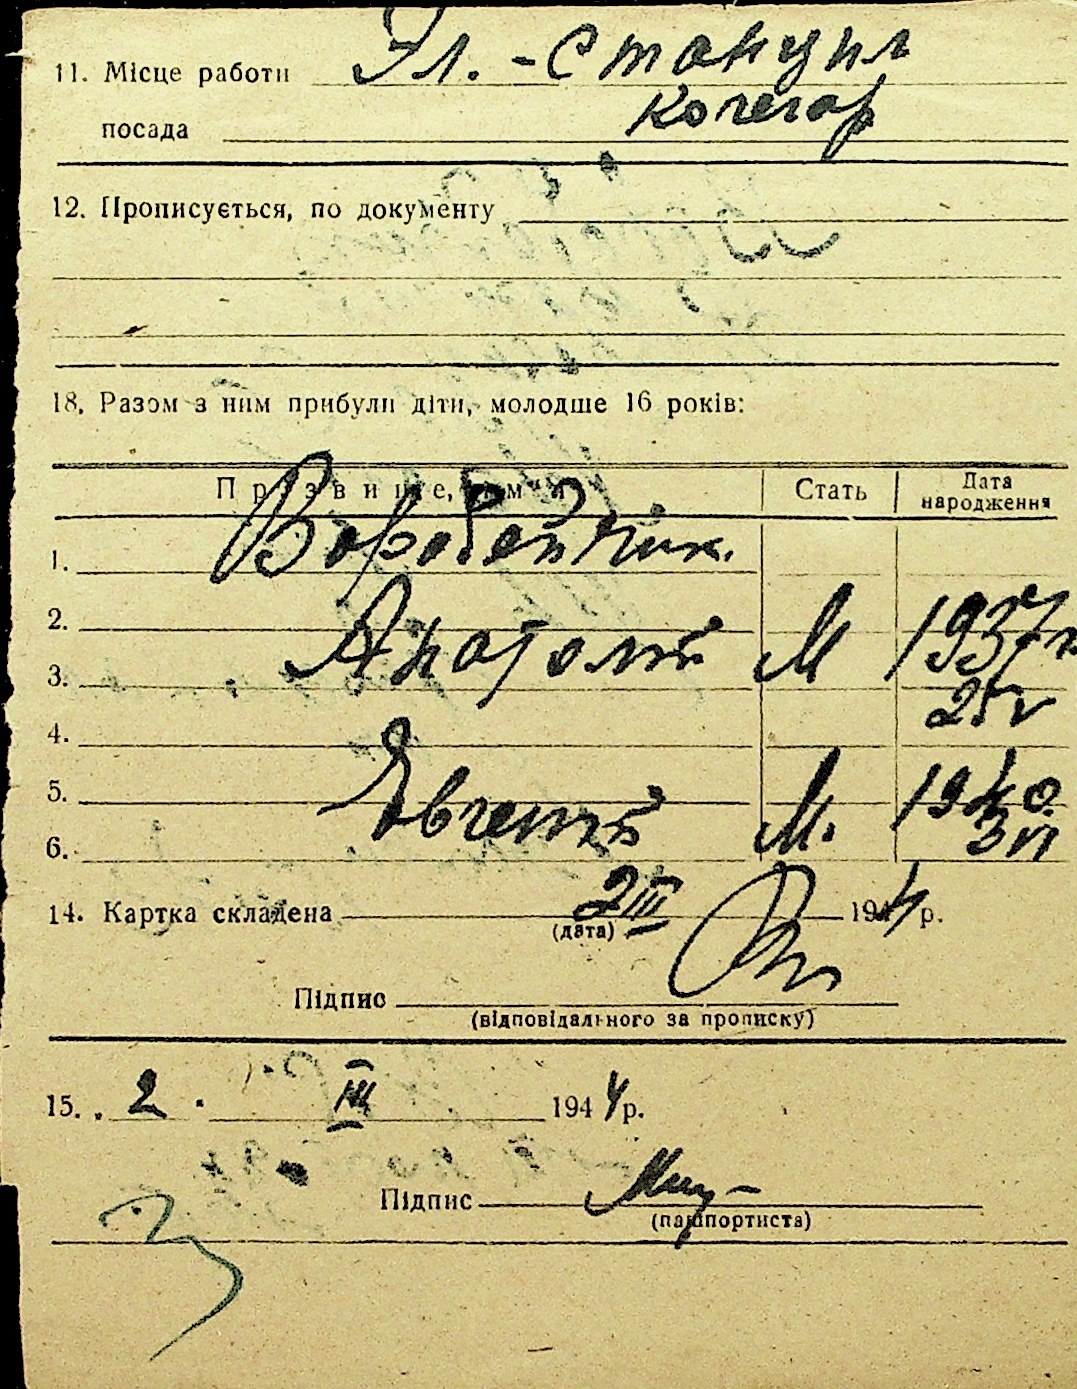 11. Місце работи Эл.-Станция
посада Кочегар
12. Прописується, по документу
18. Разом з ним прибули діти, молодше 16 років:
Прізвище, ім'я Стать Дата народження
1. Воробейчик.
2. Анатолий М 1937
3. 25 V
4.
5. Евгений М. 1940.
6. 3 VI
14. Картка складена 2 III 1944 р.
(дата)
Підпис
(відповідального за прописку)
15. 2. III 1944 р.
Підпис
(пашпортиста)